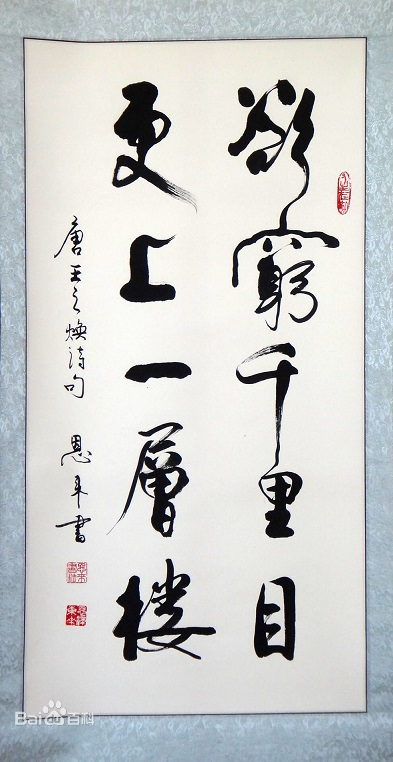 欲窮千里目
更上一層楼
唐王之煥詩句 恩來書
Baidu百科